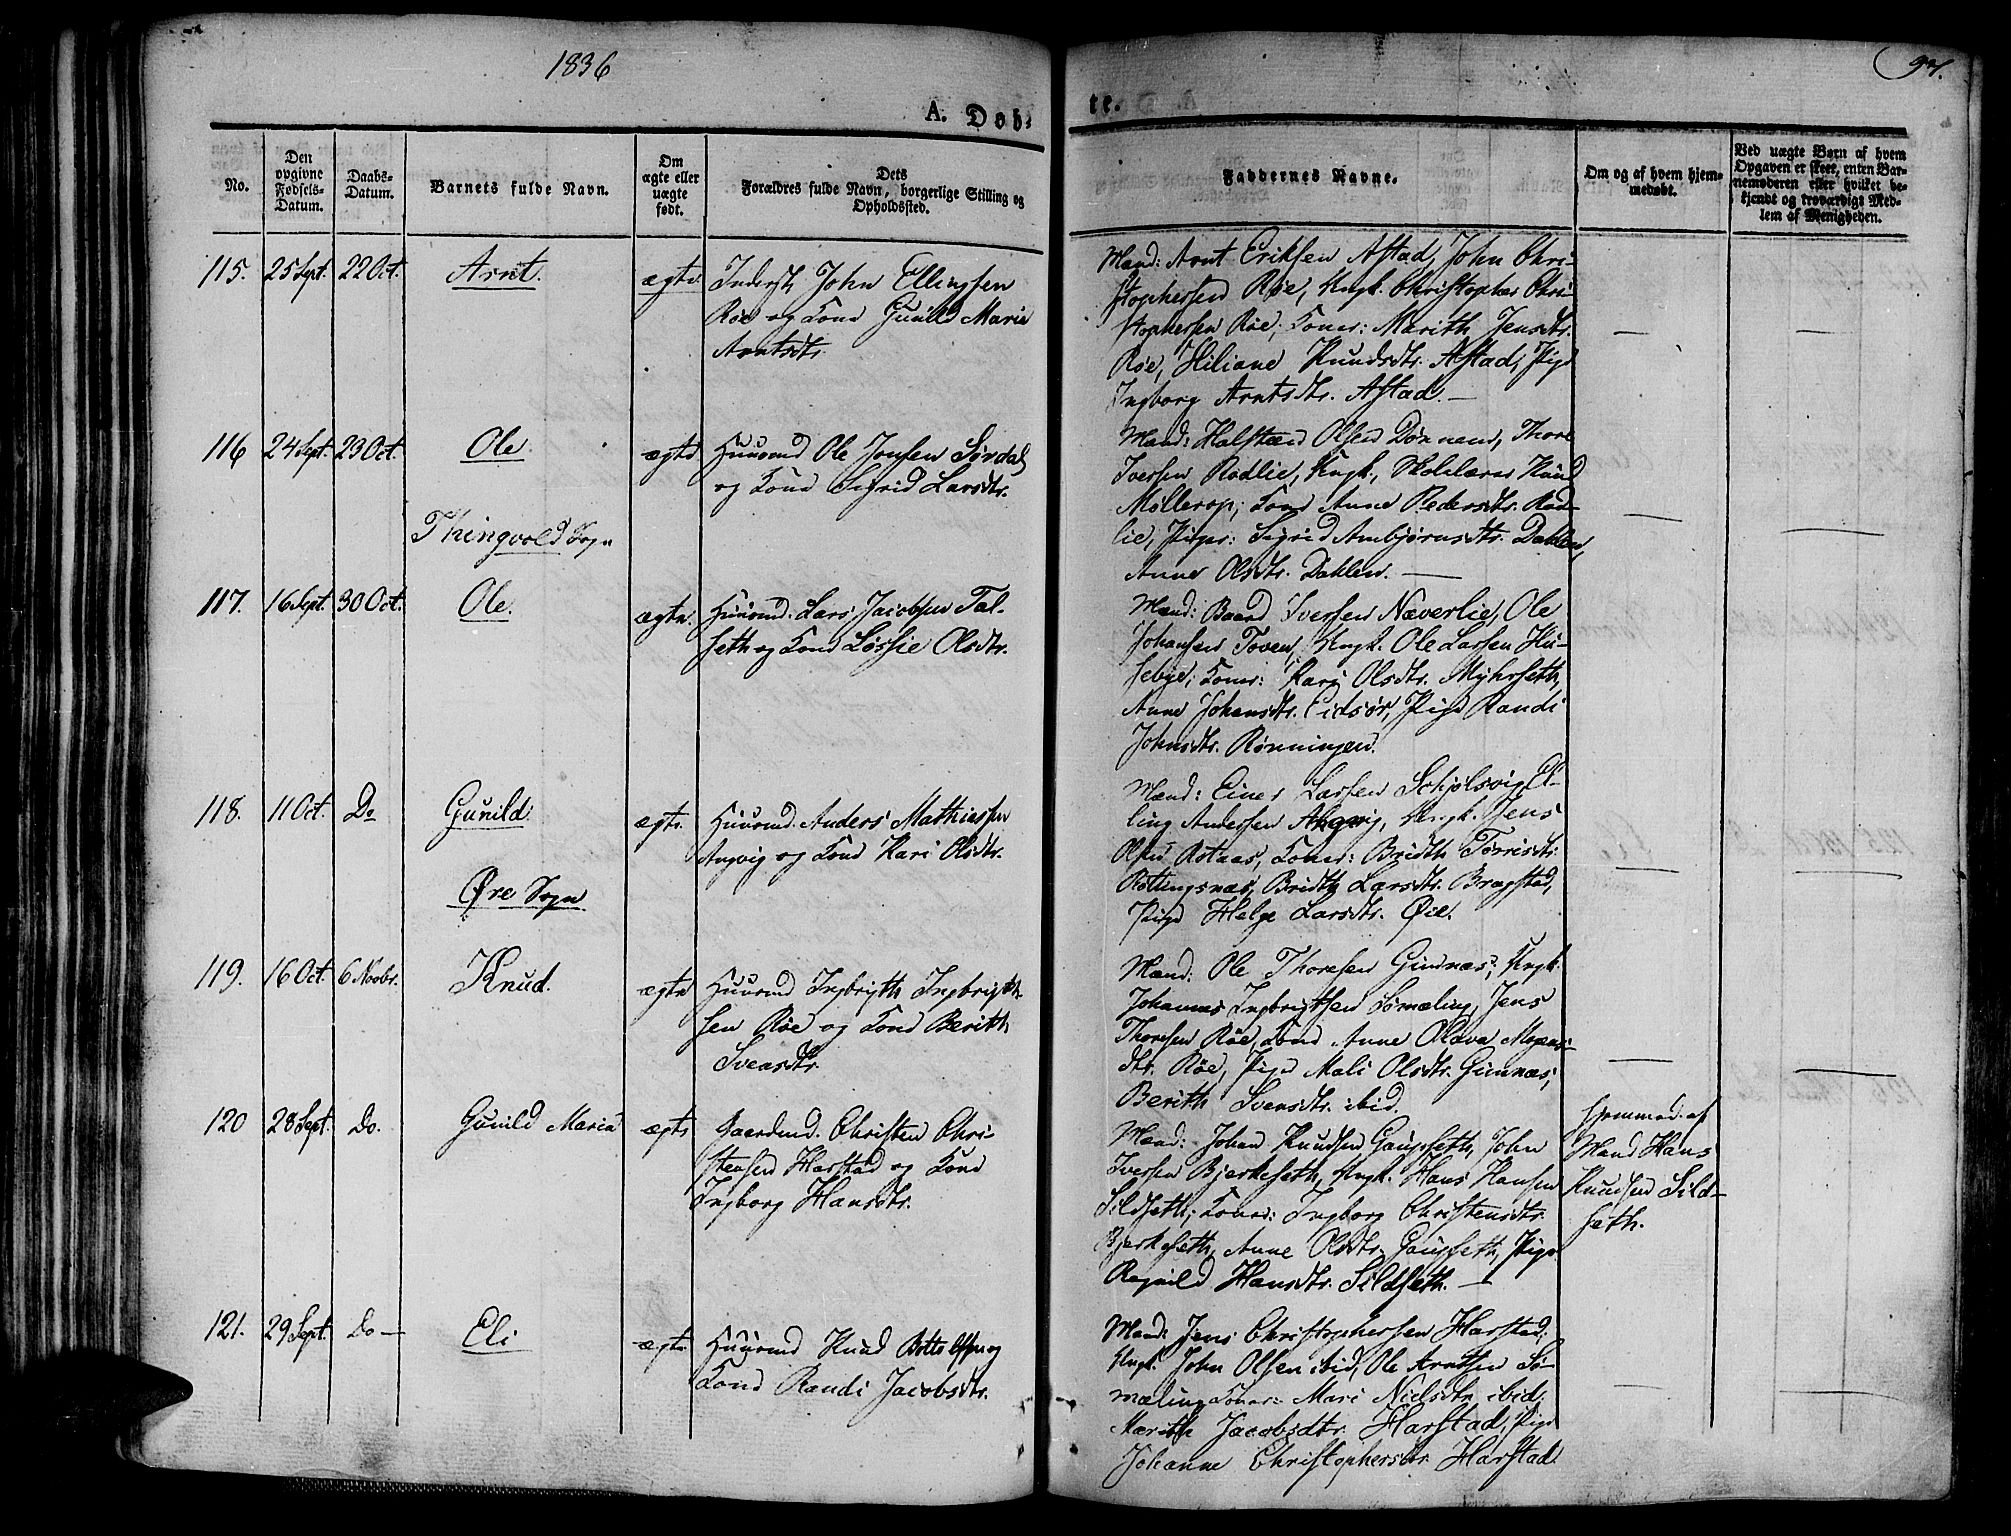 1836
97.
A. Døbte.
No.
Den opgivne Fødsels-Datum.
Daabs-Datum.
Barnets fulde Navn.
Om ægte eller uægte født.
Dets Forældres fulde Navn, borgerlige Stilling og Opholdssted.
Faddernes Navne.
Om og af hvem hjemmedøbt.
Ved uægte Børn af hvem Opgaven er skeet, enten Barnemoderen eller hvilket bekjendt og troværdigt Medlem af Menigheden.
115. 25 Sept. 22 Oct. Arnt. ægte
Inderst John Ellingsen
Røe og Kone Gunild Marie
Arntsdtr.
Mænd: Arnt Eriksen Astad, John Chri-
stophersen Røe, Ungk. Christopher Chri-
stophersen Røe; Koner: Marith Jensdtr.
Røe, Hiliane Knudsdtr. Astad, Pige
Ingborg Arntsdtr. Astad. —
116 24 Sept. 23 Oct. Ole. ægte
Huusmd Ole Jonsen Sørdal
og Kone Sigrid Larsdtr.
Mænd: Halsteen Olsen Dønnem, Thore
Iversen Rødlie, Ungk. Skolelærer Knud
Møllerop; Kone Anne Pedersdtr. Rød-
lie, Piger: Sigrid Ambjørnsdtr. Dahlen,
Anne Olsdtr. Dahlen. —
Thingvold Sogn
117. 16 Sept. 30 Oct. Ole. ægte.
Huusmd. Lars Jacobsen Tal-
seth og Kone Løssie Olsdtr.
Mænd: Baard Iversen Næverlie, Ole
Johansen Toven, Ungk. Ole Larsen Hu-
sebye; Koner: Kari Olsdtr. Myhrseth,
Anne Johansdtr. Eidsør, Pige Randi
Johnsdtr. Rønningen.
118. 11 Oct. Do Gunild. ægte
Huusmd. Anders Mathiessen
Angvig og Kone Kari Olsdtr.
Mænd: Einer Larsen Schjølsvig, El-
ling Andersen Angvig, Ungk. Jens
Olsen Aasaas, Koner: Bridth Tørrisdtr.
Rottingsnæs, Bridth Larsdtr. Bragstad,
Pige Helge Larsdtr. Øie.
Øre Sogn
119. 16 Oct. 6 Novbr. Knud. ægte
Huusmd Ingbrigth Ingbrigth-
sen Røe og Kone Berith
Svensdtr.
Mænd: Ole Thoresen Gimnæs, Ungk.
Johannes Ingbrigtsen Sømæling, Jens
Thoresen Røe, Kone Anne Olava Mogens-
dtr. Røe, Pige Mali Olsdtr. Gimnæs,
Berith Svensdtr. ibid.
120 28 Sept. Do. Gunild Maria ægte
Gaardmd. Christen Chri-
stensen Harstad og Kone
Ingborg Hansdtr.
Mænd: Johan Knudsen Gaupseth, John
Iversen Bjerkeseth, Ungk. Hans Hansen
Sildseth; Koner: Ingborg Christensdtr.
Bjerkeseth, Anne Olsdtr. Gaupseth, Pige
Ragnild Hansdtr. Sildseth. —
Hjemmed. af
Mand Hans
Knudsen Sild-
seth.
121. 29 Sept. Do — Eli ægte
Huusmd Knud Bottolfsen og
Kone Randi Jacobsdtr.
Mænd: Jens Christophersen Harstad;
Ungk. John Olsen ibid, Ole Arntsen Sø-
mæling Koner: Mari Nielsdtr. ibid;
Marith Jacobsdtr. Harstad, Pige
Johanne Christophersdtr Harstad